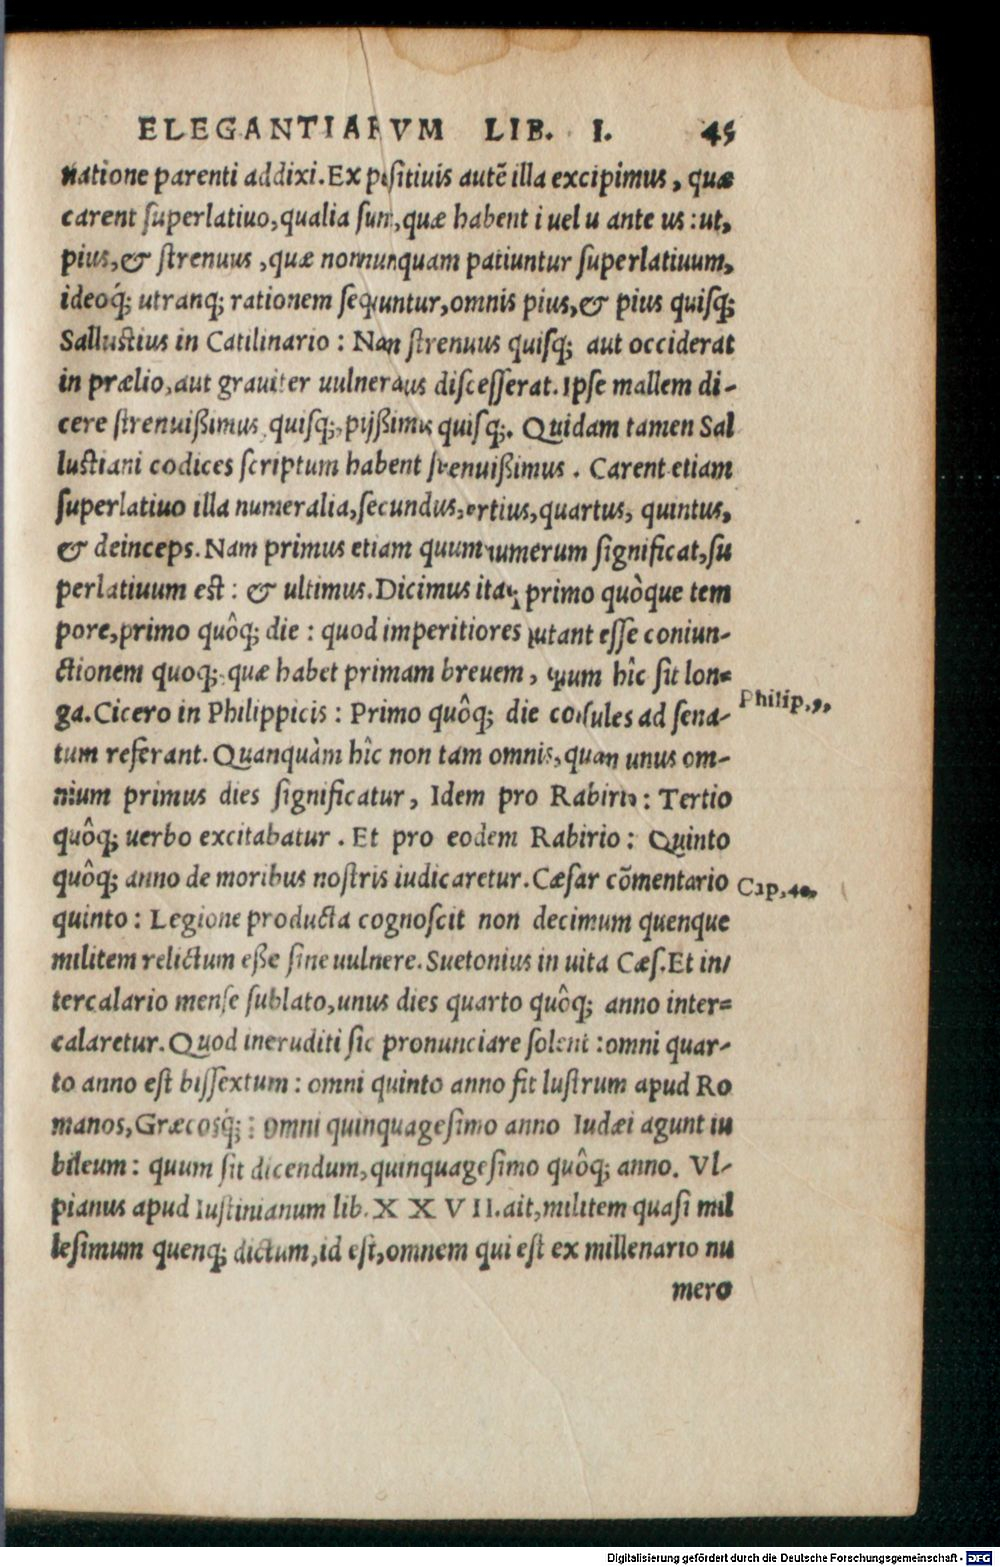 ELEGANTIARVM LIB. I. 45
natione parenti addixi. Ex positiuis autẽ illa excipimus, quæ
carent superlatiuo, qualia sunt, quæ habent i uel u ante us: ut,
pius, & strenuus, quæ nonnunquam patiuntur superlatiuum,
ideoq́; utranq; rationem sequuntur, omnis pius, & pius quisq;
Sallustius in Catilinario: Nam strenuus quisq; aut occiderat
in prælio, aut grauiter uulneratus discesserat. Ipse mallem di-
cere strenuißimus quisq;, pijßimus quisq;. Quidam tamen Sal
lustiani codices scriptum habent strenuißimus. Carent etiam
superlatiuo illa numeralia, secundus, tertius, quartus, quintus,
& deinceps. Nam primus etiam quum numerum significat, su
perlatiuum est: & ultimus. Dicimus itaq; primo quòque tem
pore, primo quôq; die: quod imperitiores putant esse coniun-
ctionem quoq; quæ habet primam breuem, quum hîc sit lon-
ga. Cicero in Philippicis: Primo quôq; die consules ad sena-
Philip. 9.
tum referant. Quanquàm hîc non tam omnis, quam unus om-
nium primus dies significatur, Idem pro Rabirio: Tertio
quôq; uerbo excitabatur. Et pro eodem Rabirio: Quinto
quôq; anno de moribus nostris iudicaretur. Cæsar cõmentario
Cap. 40.
quinto: Legione producta cognoscit non decimum quenque
militem relictum eße sine uulnere. Suetonius in uita Cæs. Et in/
tercalario mense sublato, unus dies quarto quôq; anno inter-
calaretur. Quod ineruditi sic pronunciare solent: omni quar-
to anno est bissextum: omni quinto anno fit lustrum apud Ro
manos, Græcosq́;: omni quinquagesimo anno Iudæi agunt iu
bileum: quum sit dicendum, quinquagesimo quôq; anno. Vl-
pianus apud Iustinianum lib. X X V II. ait, militem quasi mil
lesimum quenq; dictum, id est, omnem qui est ex millenario nu
mero
Digitalisierung gefördert durch die Deutsche Forschungsgemeinschaft - DFG